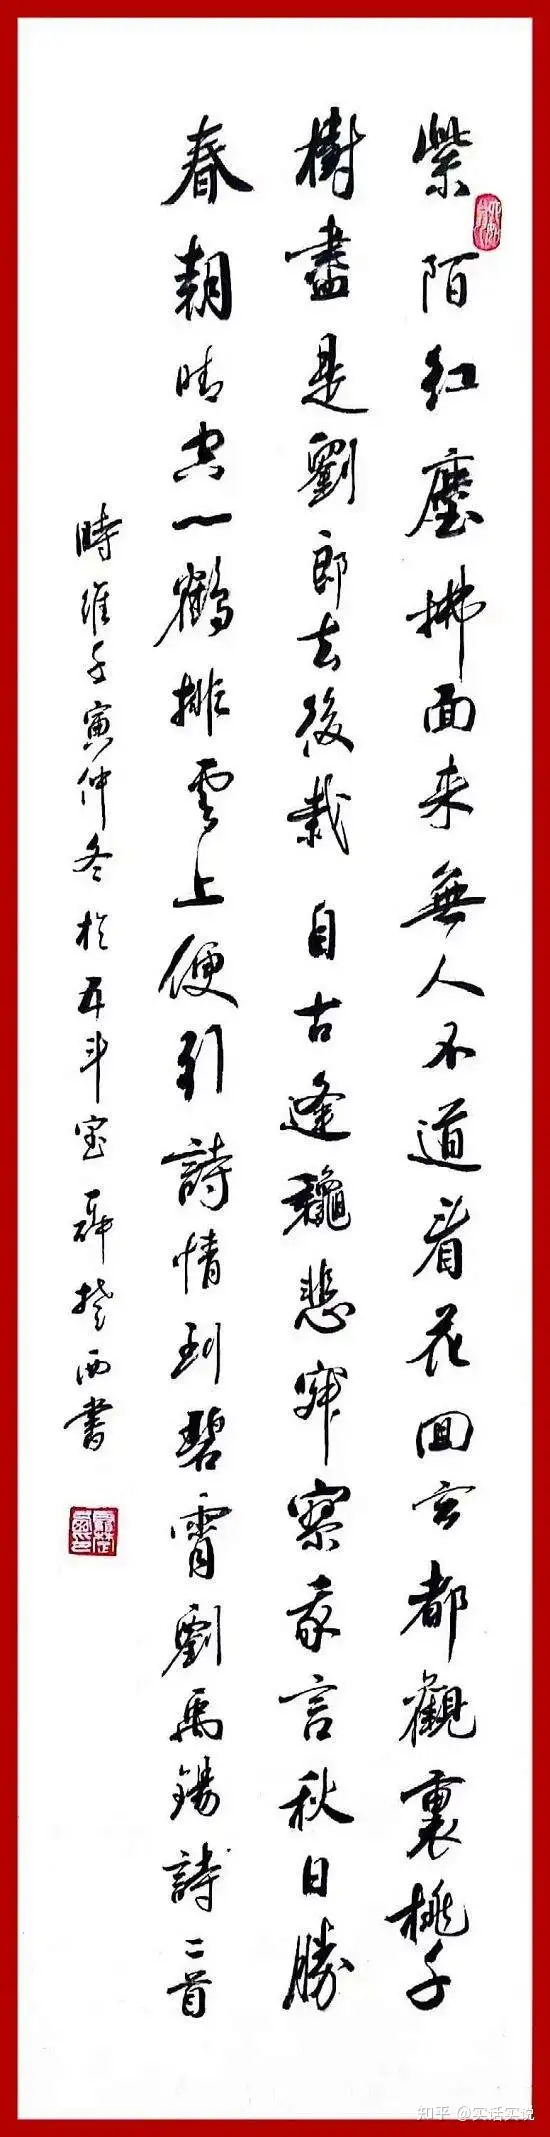 紫陌红塵拂面来無人不道看花回玄都觀裏桃千
樹盡是劉郎去後栽 自古逢龝悲寂寥我言秋日勝
春朝晴空一鶴排雲上便引詩情到碧霄劉禹錫詩二首
時維壬寅仲冬於五斗室 楚西書
知乎 @实话实说